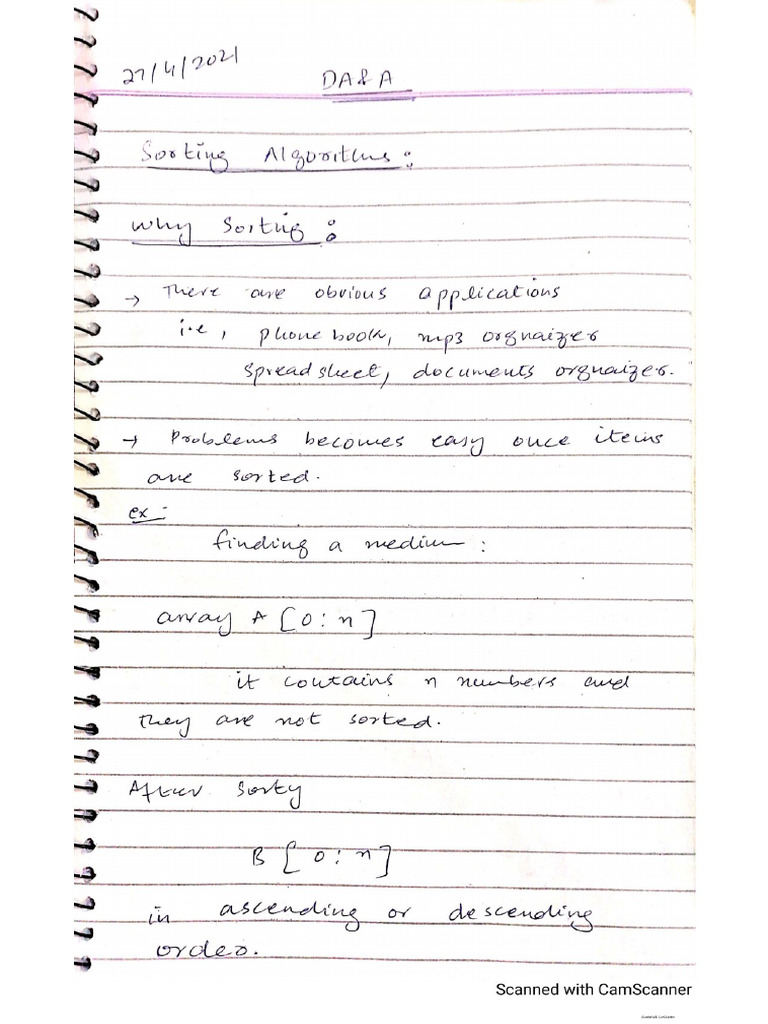 27/4/2021
DA&A
Sorting Algorithms:
Why Sorting:
→ There are obvious applications
i.e, phone book, mp3 orgnaizer
spreadsheet, documents orgnaizer.
→ Problems becomes easy once items
are sorted.
ex:-
finding a medium:
array A [0:n]
it contains n numbers and
they are not sorted.
After sorty
B [0:n]
in ascending or descending
order.
Scanned with CamScanner
Scanned with CamScanner